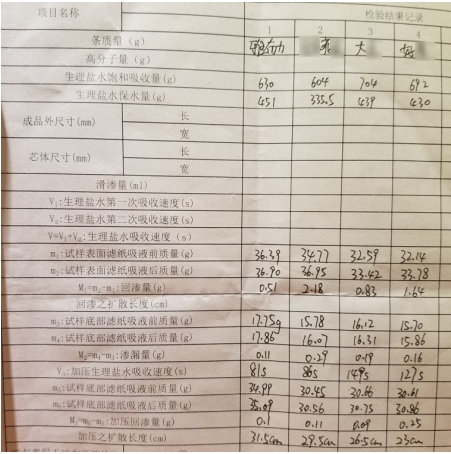 项目名称 检验结果记录
1 2 3 4
条质量(g) 大
高分子量(g)
生理盐水饱和吸收量(g) 630 604 704 692
生理盐水保水量(g) 451 335.5 439 430
成品外尺寸(mm) 长
宽
芯体尺寸(mm) 长
宽
滑渗量(ml)
V₁:生理盐水第一次吸收速度(s)
V₂:生理盐水第二次吸收速度(s)
V=V₁+V₂:生理盐水吸收速度(s)
m₁:试样表面滤纸吸液前质量(g) 36.39 34.77 32.59 32.14
m₂:试样表面滤纸吸液后质量(g) 36.90 36.95 33.42 33.78
M₁=m₂-m₁:回渗量(g) 0.51 2.18 0.83 1.64
回渗之扩散长度(cm)
m₃:试样底部滤纸吸液前质量(g) 17.75g 15.78 16.12 15.70
m₄:试样底部滤纸吸液后质量(g) 17.86 16.07 16.31 15.86
M₂=m₄-m₃:渗漏量(g) 0.11 0.29 0.19 0.16
V₃:加压生理盐水吸收速度(s) 81s 86s 149s 127s
m₅:试样底部滤纸吸液前质量(g) 34.99 30.45 30.66 30.61
m₆:试样底部滤纸吸液后质量(g) 35.09 30.56 30.75 30.86
M₃=m₆-m₅:加压回渗量(g) 0.1 0.11 0.09 0.25
加压之扩散长度(cm) 31.5cm 29.5cm 26.5cm 23cm